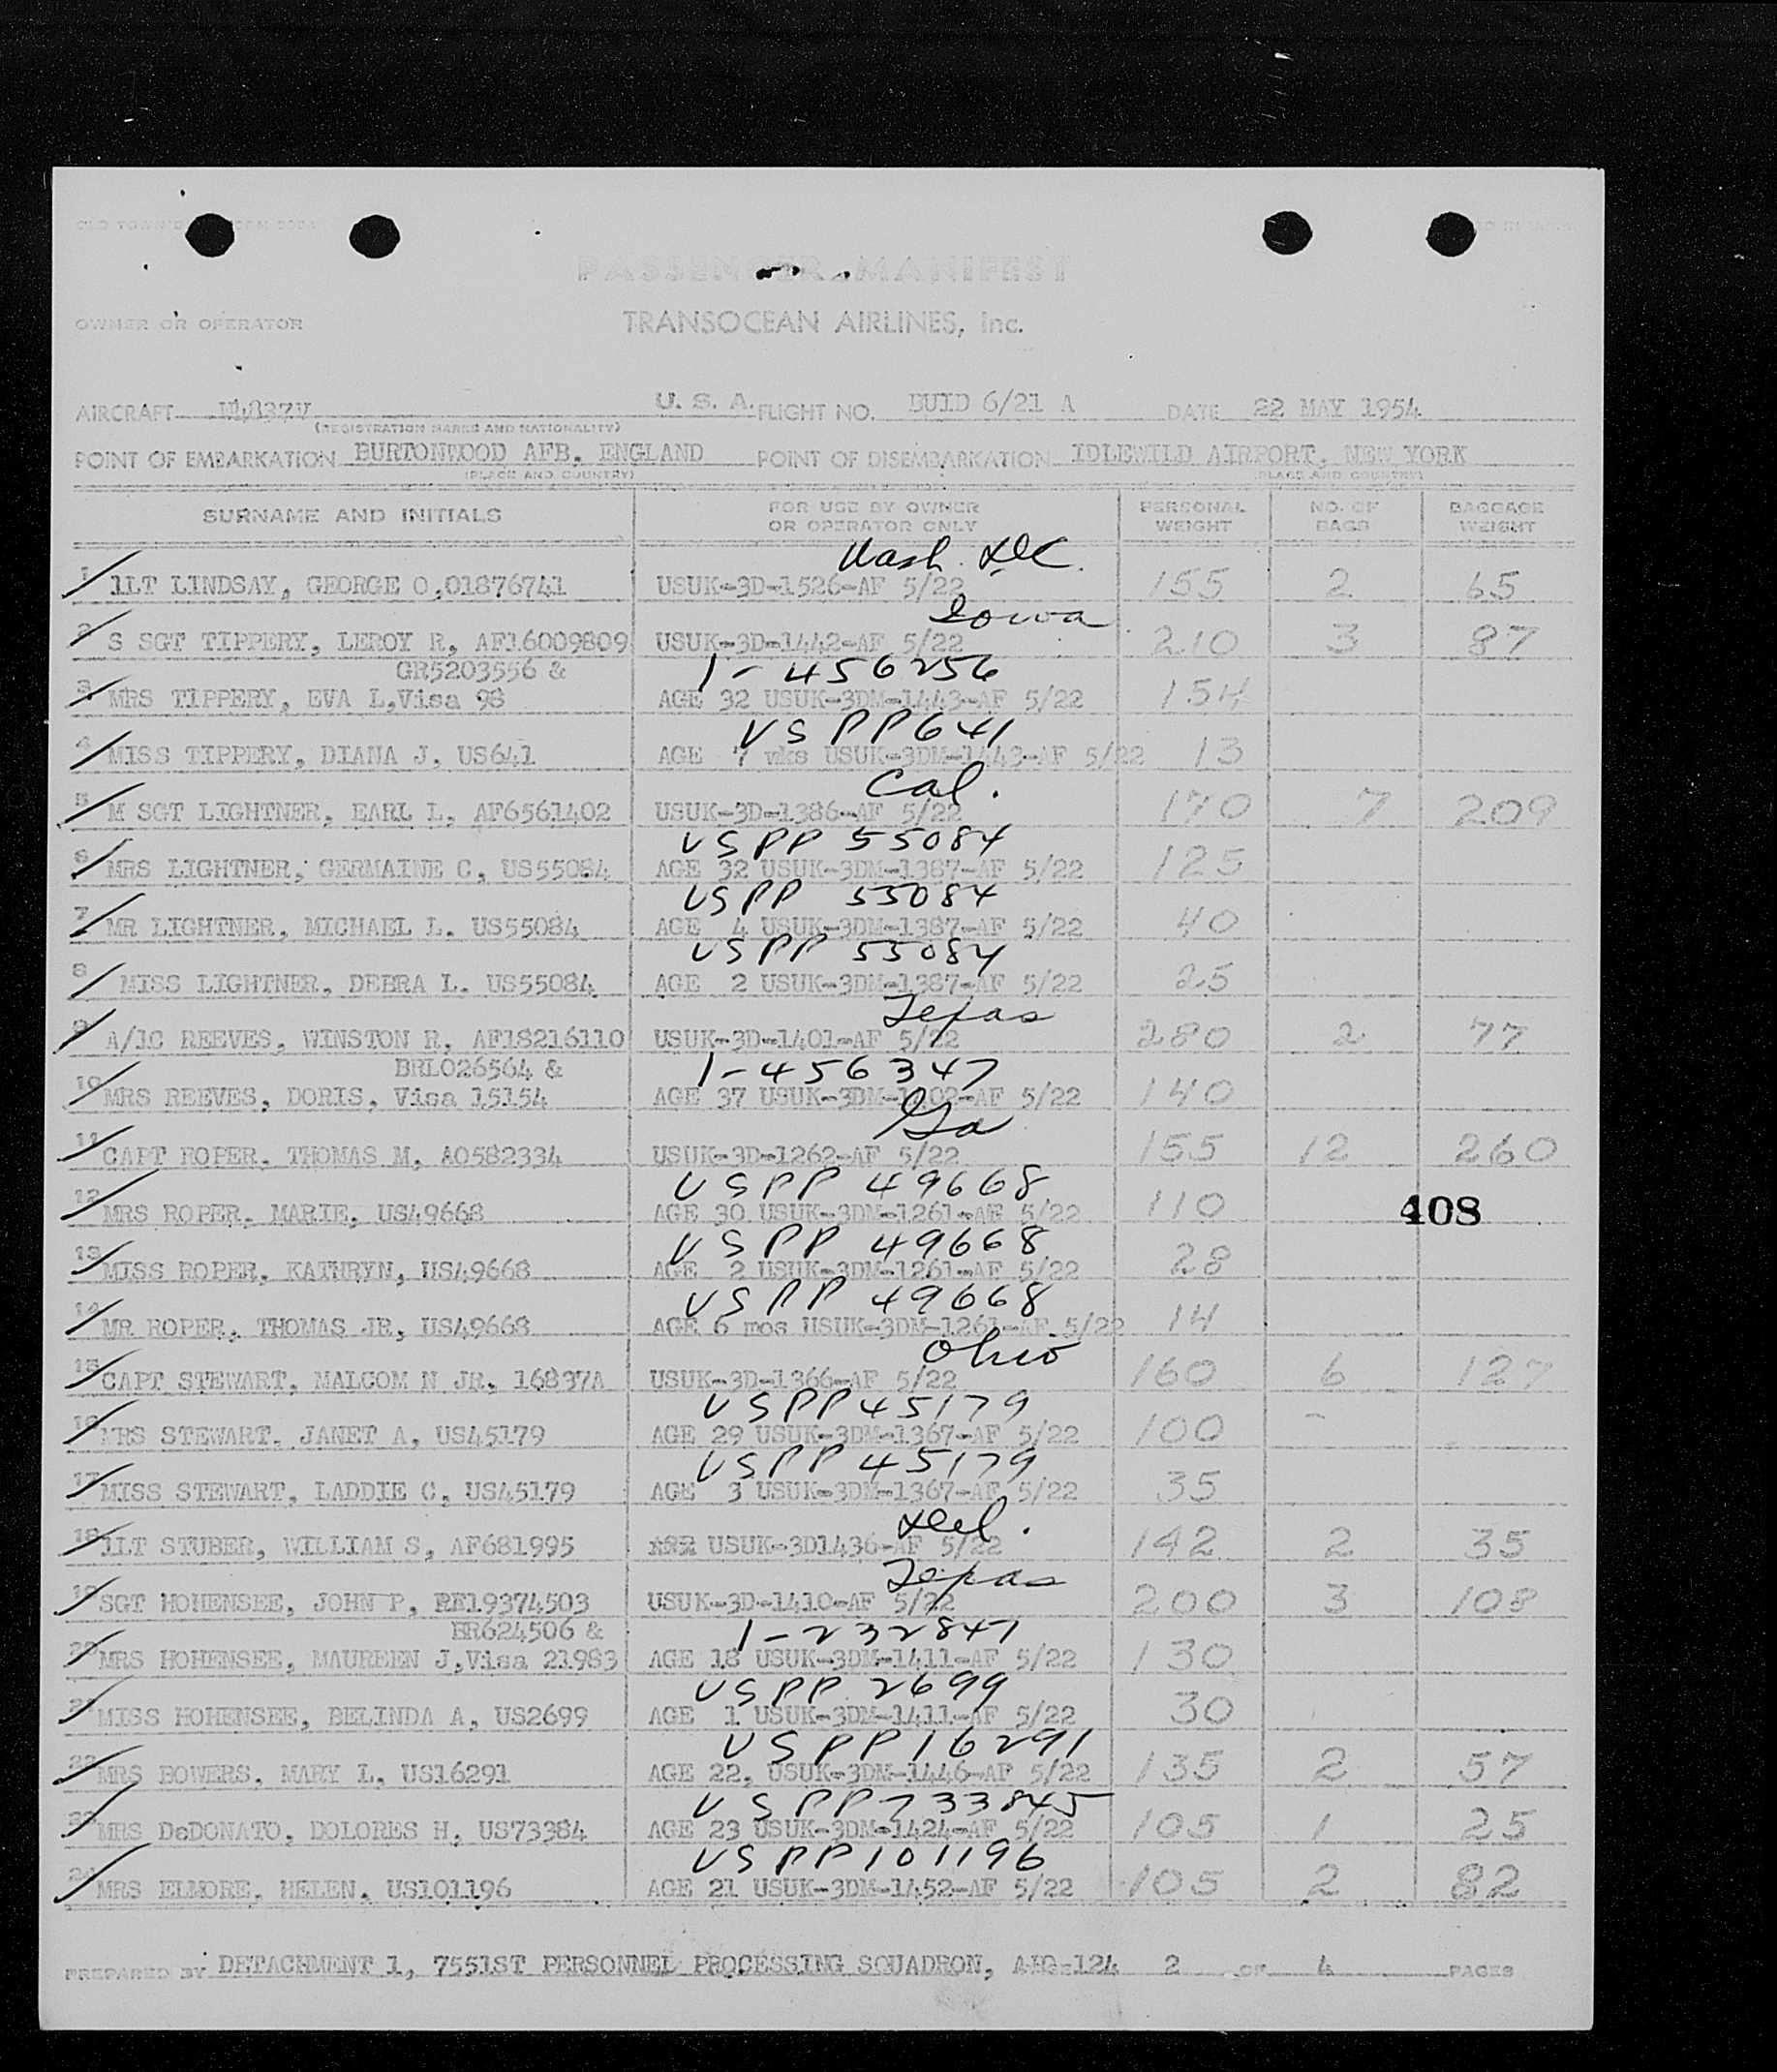 PASSENGER MANIFEST
OWNER OR OPERATOR TRANSOCEAN AIRLINES, Inc.
AIRCRAFT N4837V U. S. A. FLIGHT NO. BUID 6/21 A DATE 22 MAY 1954
(REGISTRATION MARKS AND NATIONALITY)
POINT OF EMBARKATION BURTONWOOD AFB, ENGLAND POINT OF DISEMBARKATION IDLEWILD AIRPORT, NEW YORK
(PLACE AND COUNTRY) (PLACE AND COUNTRY)
SURNAME AND INITIALS FOR USE BY OWNER OR OPERATOR ONLY PERSONAL WEIGHT NO. OF BAGS BAGGAGE WEIGHT
Wash. DC.
1 1LT LINDSAY, GEORGE O,01876741 USUK-3D-1526-AF 5/22 155 2 65
Iowa
2 S SGT TIPPERY, LEROY R, AF16009809 USUK-3D-1442-AF 5/22 210 3 87
GR5203556 & 1-456256
3 MRS TIPPERY, EVA L,Visa 98 AGE 32 USUK-3DM-1443-AF 5/22 154
US PP641
4 MISS TIPPERY, DIANA J, US641 AGE 7 wks USUK-3DM-1443-AF 5/22 13
Cal.
5 M SGT LIGHTNER, EARL L, AF6561402 USUK-3D-1386-AF 5/22 170 7 209
USPP 55084
6 MRS LIGHTNER, GERMAINE C, US55084 AGE 32 USUK-3DM-1387-AF 5/22 125
USPP 55084
7 MR LIGHTNER, MICHAEL L. US55084 AGE 4 USUK-3DM-1387-AF 5/22 40
USPP 55084
8 MISS LIGHTNER, DEBRA L. US55084 AGE 2 USUK-3DM-1387-AF 5/22 25
Texas
9 A/1C REEVES, WINSTON R, AF18216110 USUK-3D-1401-AF 5/22 280 2 77
BRL026564 & 1-456347
10 MRS REEVES, DORIS, Visa 15154 AGE 37 USUK-3DM-1402-AF 5/22 140
Ga
11 CAPT ROPER, THOMAS M, AO582334 USUK-3D-1262-AF 5/22 155 12 260
USPP 49668
12 MRS ROPER, MARIE, US49668 AGE 30 USUK-3DM-1261-AF 5/22 110 408
USPP 49668
13 MISS ROPER, KATHRYN, US49668 AGE 2 USUK-3DM-1261-AF 5/22 28
USPP 49668
14 MR ROPER, THOMAS JR, US49668 AGE 6 mos USUK-3DM-1261-AF 5/22 14
Ohio
15 CAPT STEWART, MALCOM N JR, 16837A USUK-3D-1366-AF 5/22 160 6 127
USPP45179
16 MRS STEWART, JANET A, US45179 AGE 29 USUK-3DM-1367-AF 5/22 100 -
USPP45179
17 MISS STEWART, LADDIE C, US45179 AGE 3 USUK-3DM-1367-AF 5/22 35
Del.
18 1LT STUBER, WILLIAM S, AF681995 USUK-3D1436-AF 5/22 142 2 35
Texas
19 SGT HOHENSEE, JOHN P, RE19374503 USUK-3D-1410-AF 5/22 200 3 108
BR624506 & 1-232847
20 MRS HOHENSEE, MAUREEN J,Visa 21983 AGE 18 USUK-3DM-1411-AF 5/22 130
USPP 2699
21 MISS HOHENSEE, BELINDA A, US2699 AGE 1 USUK-3DM-1411-AF 5/22 30
USPP16291
22 MRS BOWERS, MARY L, US16291 AGE 22, USUK-3DM-1446-AF 5/22 135 2 57
USPP733845
23 MRS DeDONATO, DOLORES H, US73384 AGE 23 USUK-3DM-1424-AF 5/22 105 1 25
USPP101196
24 MRS ELMORE, HELEN, US101196 AGE 21 USUK-3DM-1452-AF 5/22 105 2 82
PREPARED BY DETACHMENT 1, 7551ST PERSONNEL PROCESSING SQUADRON, 2 OF 4 PAGES